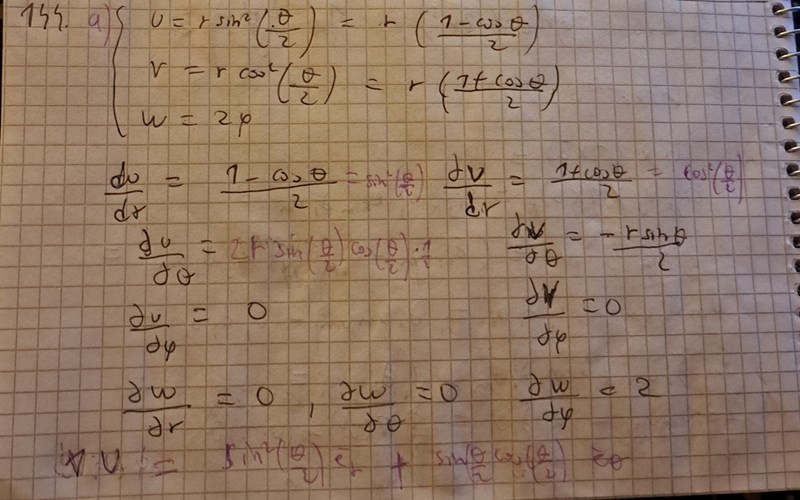 144. a) { u = r sin²(θ/2) = r (1-cosθ/2)
v = r cos²(θ/2) = r (1+cosθ/2)
w = 2φ
∂u/∂r = 1-cosθ/2 = sin²(θ/2) ∂v/∂r = 1+cosθ/2 = cos²(θ/2)
∂u/∂θ = 2r sin(θ/2) cos(θ/2)·1/2 ∂v/∂θ = - r sinθ/2
∂u/∂φ = 0 ∂v/∂φ = 0
∂w/∂r = 0 , ∂w/∂θ = 0 ∂w/∂φ = 2
∇u = sin²(θ/2) er + sin θ/2 cos(θ/2) eθ